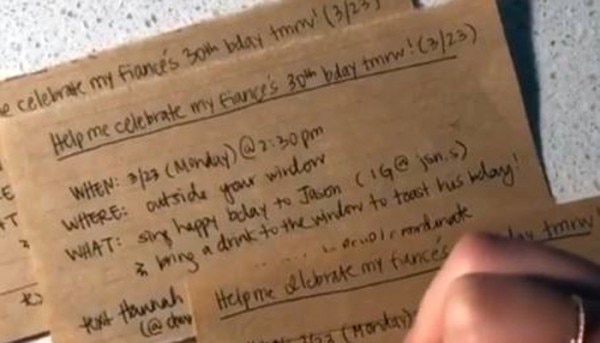 e celebrate my fiancé's 30th bday tmrw! (3/23)
Help me celebrate my fiancé's 30th bday tmrw! (3/23)
WHEN: 3/23 (Monday) @ 2:30pm
WHERE: outside your window
WHAT: sing happy bday to Jason (IG@ jsn.s)
& bring a drink to the window to toast his bday!
coordinate
text Hannah
Help me celebrate my fiancé's day tmrw!
3/23 (Monday)